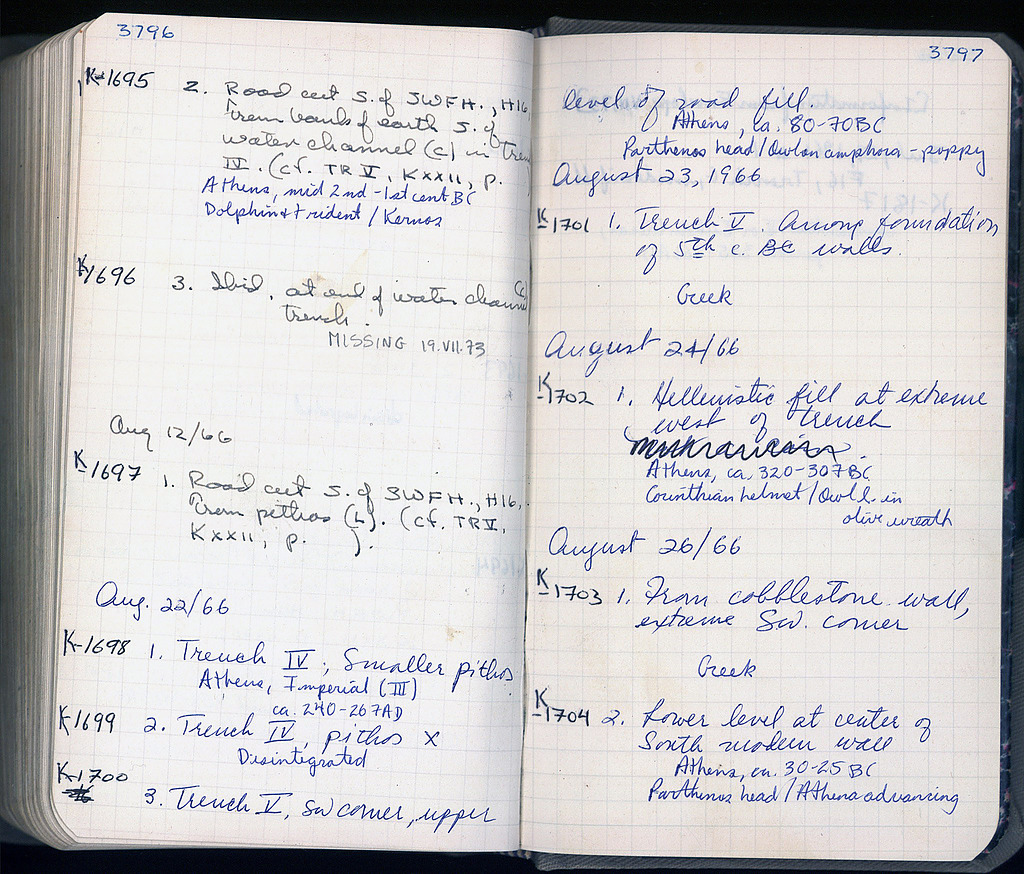 3796
K-1695 2. Road cut S. of SWFH., H16,
from bank of earth S. of
water channel (C) in Trench
IV. (cf. TR V, KXXII, p.
Athens, mid 2nd-1st cent BC
Dolphin & trident / Kernos
K-1696 3. Ibid, at end of water channel (C)
trench.
MISSING 19.VII.73
Aug 12/66
K-1697 1. Road cut S. of SWFH., H16,
from pithos (L). (cf. TR V,
KXXII, p. ).
Aug. 22/66
K-1698 1. Trench IV, Smaller pithos
Athens, Imperial (III)
ca. 240-267AD
K-1699 2. Trench IV, pithos X
Disintegrated
K-1700
3. Trench V, SW corner, upper
3797
level of road fill.
Athens, ca. 80-70BC
Parthenos head/Owl on amphora - poppy
August 23, 1966
K-1701 1. Trench V. Among foundation
of 5th c. BC walls.
Greek
August 24/66
K-1702 1. Hellenistic fill at extreme
west of trench
Athens, ca. 320-307BC
Corinthian helmet/Owl l. in
olive wreath
August 26/66
K-1703 1. From cobblestone wall,
extreme SW. corner
Greek
K-1704 2. Lower level at center of
South modern wall
Athens, ca. 30-25 BC
Parthenos head/Athena advancing